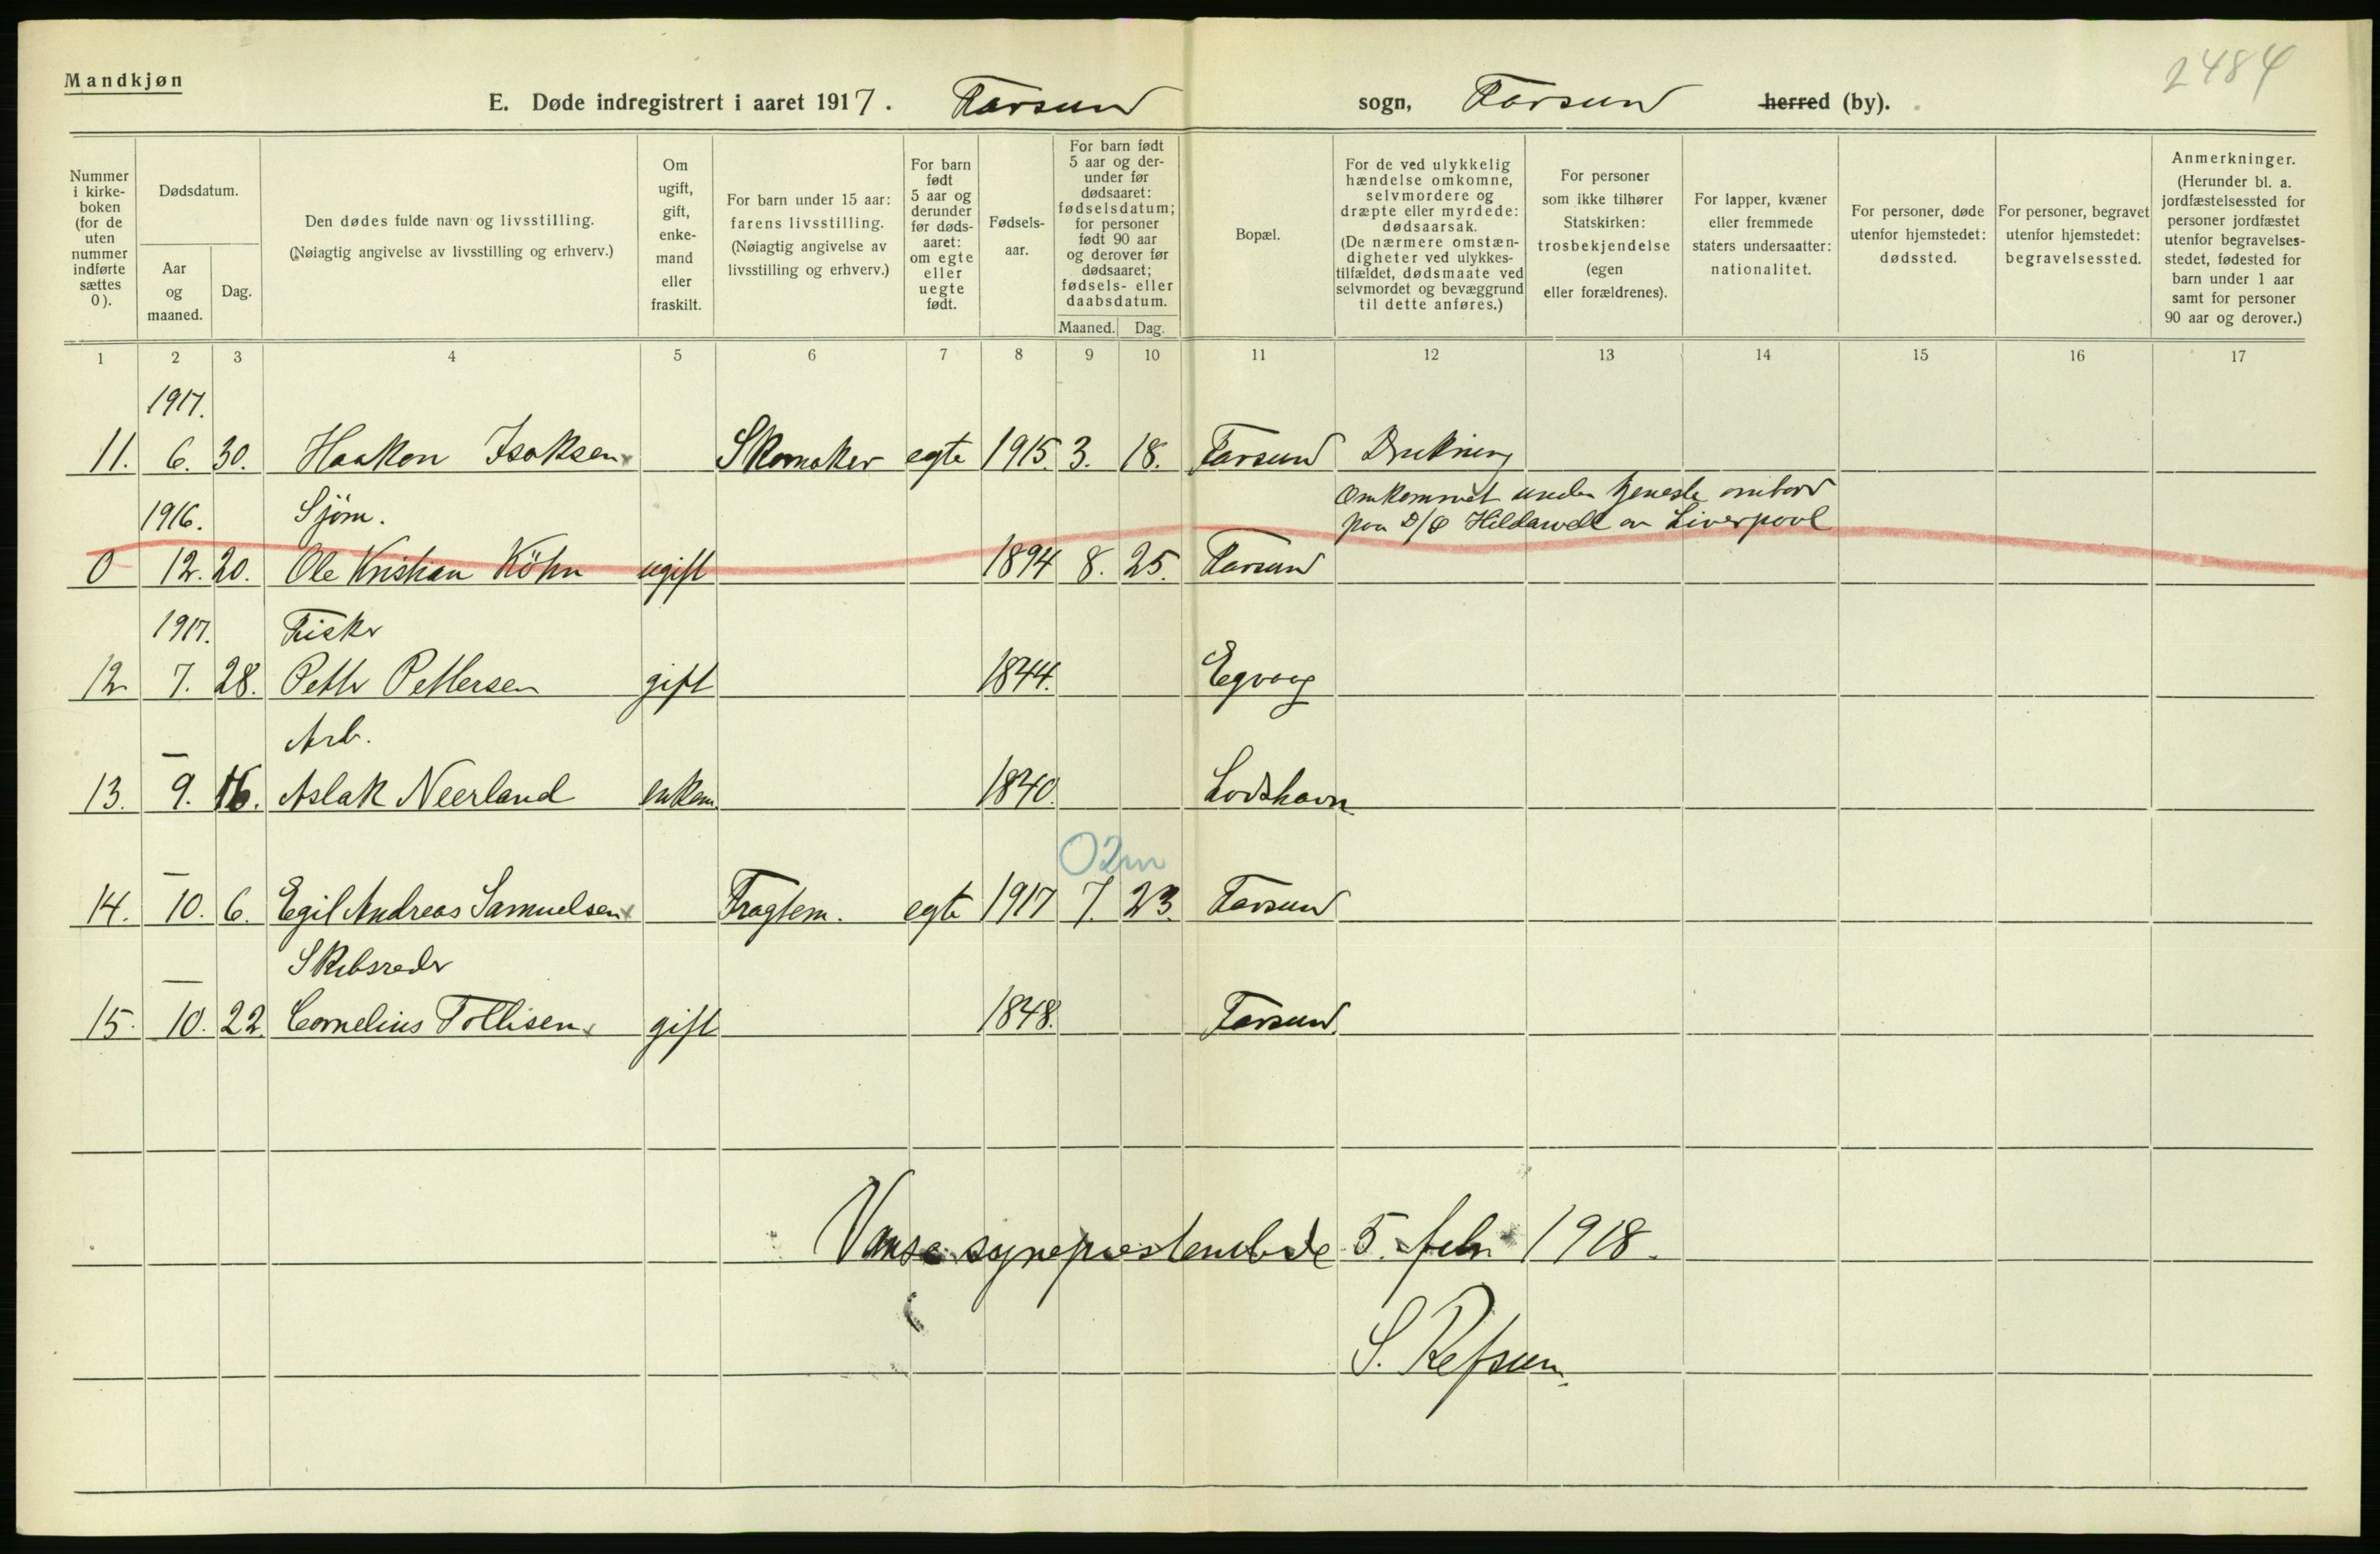 2484
Mandkjøn
E. Døde indregistrert i aaret 1917. Farsund sogn, Farsund herred (by).
Nummer i kirkeboken (for de uten nummer indførte sættes 0).
Dødsdatum.
Aar og maaned.
Dag.
Den dødes fulde navn og livsstilling.
(Nøiagtig angivelse av livsstilling og erhverv.)
Om ugift, gift, enkemand eller fraskilt.
For barn under 15 aar: farens livsstilling. (Nøiagtig angivelse av livsstilling og erhverv.)
For barn født 5 aar og derunder før dødsaaret: om egte eller uegte født.
Fødselsaar.
For barn født 5 aar og derunder før dødsaaret: fødselsdatum; for personer født 90 aar og derover før dødsaaret; fødsels- eller daabsdatum.
Maaned. Dag.
Bopæl.
For de ved ulykkelig hændelse omkomne, selvmordere og dræpte eller myrdede: dødsaarsak. (De nærmere omstændigheter ved ulykkestilfældet, dødsmaate ved selvmordet og bevæggrund til dette anføres.)
For personer som ikke tilhører Statskirken: trosbekjendelse (egen eller forældrenes).
For lapper, kvæner eller fremmede staters undersaatter: nationalitet.
For personer, døde utenfor hjemstedet: dødssted.
For personer, begravet utenfor hjemstedet: begravelsessted.
Anmerkninger. (Herunder bl. a. jordfæstelsessted for personer jordfæstet utenfor begravelsesstedet, fødested for barn under 1 aar samt for personer 90 aar og derover.)
1 2 3 4 5 6 7 8 9 10 11 12 13 14 15 16 17
1917.
11. 6. 30. Haakon Isaksen Skomaker egte 1915. 3. 18. Farsund Drukning
1916. Sjøm. Omkommet under tjeneste ombord
paa D/S Hildawell av Liverpool
0 12. 20. Ole Kristian Köhn ugift 1894 8. 25. Farsund
1917. Fisker
12 7. 28. Petter Pettersen gift 1844. Egvaag
Arb.
13. 9. 16. Aslak Neerland enkem. 1840. Lodshavn
02m
14. 10. 6. Egil Andreas Samuelsen Fragtem. egte 1917 7. 23. Farsund
Skibsreder
15. 10. 22. Cornelius Tollisen gift 1848. Farsund
Vanse sogneprestembede 5. febr 1918.
S. Refsum